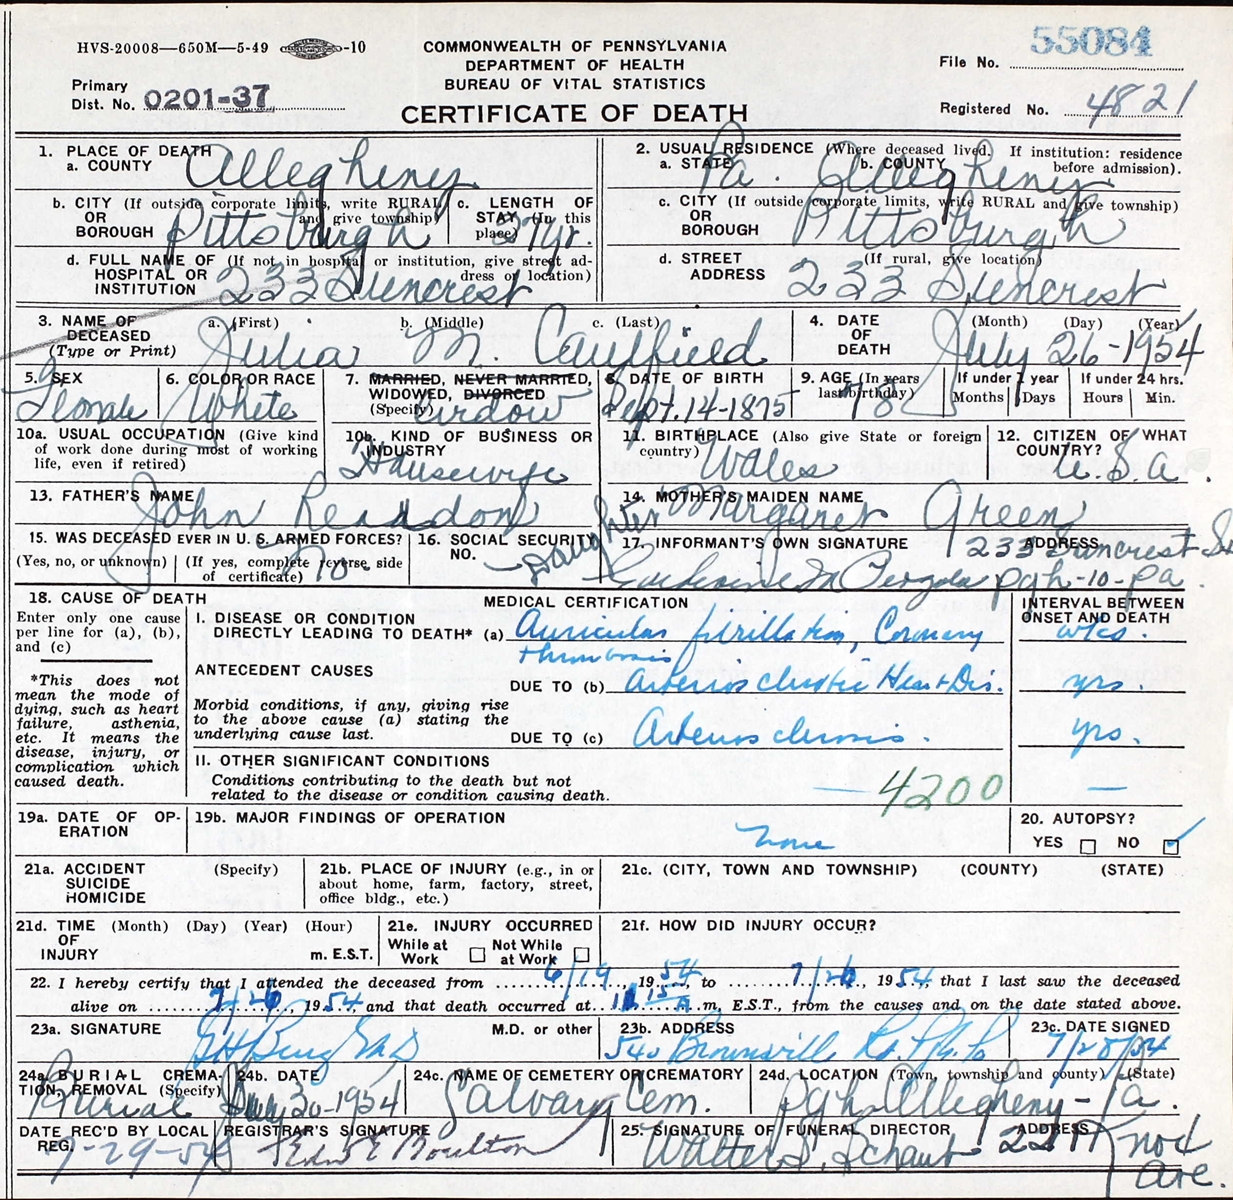 HVS-20008—650M—5-49 -10
COMMONWEALTH OF PENNSYLVANIA
DEPARTMENT OF HEALTH
BUREAU OF VITAL STATISTICS
CERTIFICATE OF DEATH
Primary
Dist. No. 0201-37
File No. 55084
Registered No. 4821
1. PLACE OF DEATH
a. COUNTY Allegheny
2. USUAL RESIDENCE (Where deceased lived. If institution: residence before admission).
a. STATE Pa. b. COUNTY Allegheny
b. CITY (If outside corporate limits, write RURAL and give township)
OR
BOROUGH Pittsburgh
c. LENGTH OF STAY (In this place) 37 yr.
c. CITY (If outside corporate limits, write RURAL and give township)
OR
BOROUGH Pittsburgh
d. FULL NAME OF (If not in hospital or institution, give street address or location)
HOSPITAL OR
INSTITUTION 233 Suncrest
d. STREET (If rural, give location)
ADDRESS 233 Suncrest
3. NAME OF DECEASED (Type or Print)
a. (First) b. (Middle) c. (Last)
Julia M. Caulfield
4. DATE OF DEATH (Month) (Day) (Year)
July 26-1954
5. SEX
Female
6. COLOR OR RACE
White
7. MARRIED, NEVER MARRIED, WIDOWED, DIVORCED (Specify)
Widow
8. DATE OF BIRTH
Sept. 14-1875
9. AGE (In years last birthday)
78
If under 1 year
Months Days
If under 24 hrs.
Hours Min.
10a. USUAL OCCUPATION (Give kind of work done during most of working life, even if retired)
10b. KIND OF BUSINESS OR INDUSTRY
Housewife
11. BIRTHPLACE (Also give State or foreign country)
Wales
12. CITIZEN OF WHAT COUNTRY?
U.S.A.
13. FATHER'S NAME
John
14. MOTHER'S MAIDEN NAME
Margaret Green
15. WAS DECEASED EVER IN U. S. ARMED FORCES?
(Yes, no, or unknown) (If yes, complete reverse side of certificate)
no
16. SOCIAL SECURITY NO.
—
17. INFORMANT'S OWN SIGNATURE ADDRESS
Daughter
233 Suncrest St
Pgh-10-Pa
18. CAUSE OF DEATH
Enter only one cause per line for (a), (b), and (c)
*This does not mean the mode of dying, such as heart failure, asthenia, etc. It means the disease, injury, or complication which caused death.
MEDICAL CERTIFICATION
INTERVAL BETWEEN ONSET AND DEATH
I. DISEASE OR CONDITION
DIRECTLY LEADING TO DEATH* (a) Auricular fibrillation, Coronary wks.
thrombosis
ANTECEDENT CAUSES
DUE TO (b) Arteriosclerotic Heart Dis. yrs.
Morbid conditions, if any, giving rise to the above cause (a) stating the underlying cause last.
DUE TO (c) Arteriosclerosis. yrs.
II. OTHER SIGNIFICANT CONDITIONS
Conditions contributing to the death but not
related to the disease or condition causing death.
— 4200 —
19a. DATE OF OPERATION
19b. MAJOR FINDINGS OF OPERATION
none
20. AUTOPSY?
YES NO ✓
21a. ACCIDENT (Specify)
SUICIDE
HOMICIDE
21b. PLACE OF INJURY (e.g., in or about home, farm, factory, street, office bldg., etc.)
21c. (CITY, TOWN AND TOWNSHIP) (COUNTY) (STATE)
21d. TIME (Month) (Day) (Year) (Hour)
OF
INJURY m. E.S.T.
21e. INJURY OCCURRED
While at Work Not While at Work
21f. HOW DID INJURY OCCUR?
22. I hereby certify that I attended the deceased from 6/19, 1954, to 7/26, 1954 that I last saw the deceased
alive on 7/26, 1954, and that death occurred at m., E.S.T., from the causes and on the date stated above.
23a. SIGNATURE M.D. or other
23b. ADDRESS
540 Brownsville Rd.
23c. DATE SIGNED
7/28/54
24a. BURIAL, CREMATION, REMOVAL (Specify)
Burial
24b. DATE
30-1954
24c. NAME OF CEMETERY OR CREMATORY
Calvary Cem.
24d. LOCATION (Town, township and county) (State)
Pgh. Allegheny-Pa.
DATE REC'D BY LOCAL REG.
7-29-54
REGISTRAR'S SIGNATURE
Edw E Boulton
25. SIGNATURE OF FUNERAL DIRECTOR ADDRESS
Walter S. Schaub Knox
Ave.